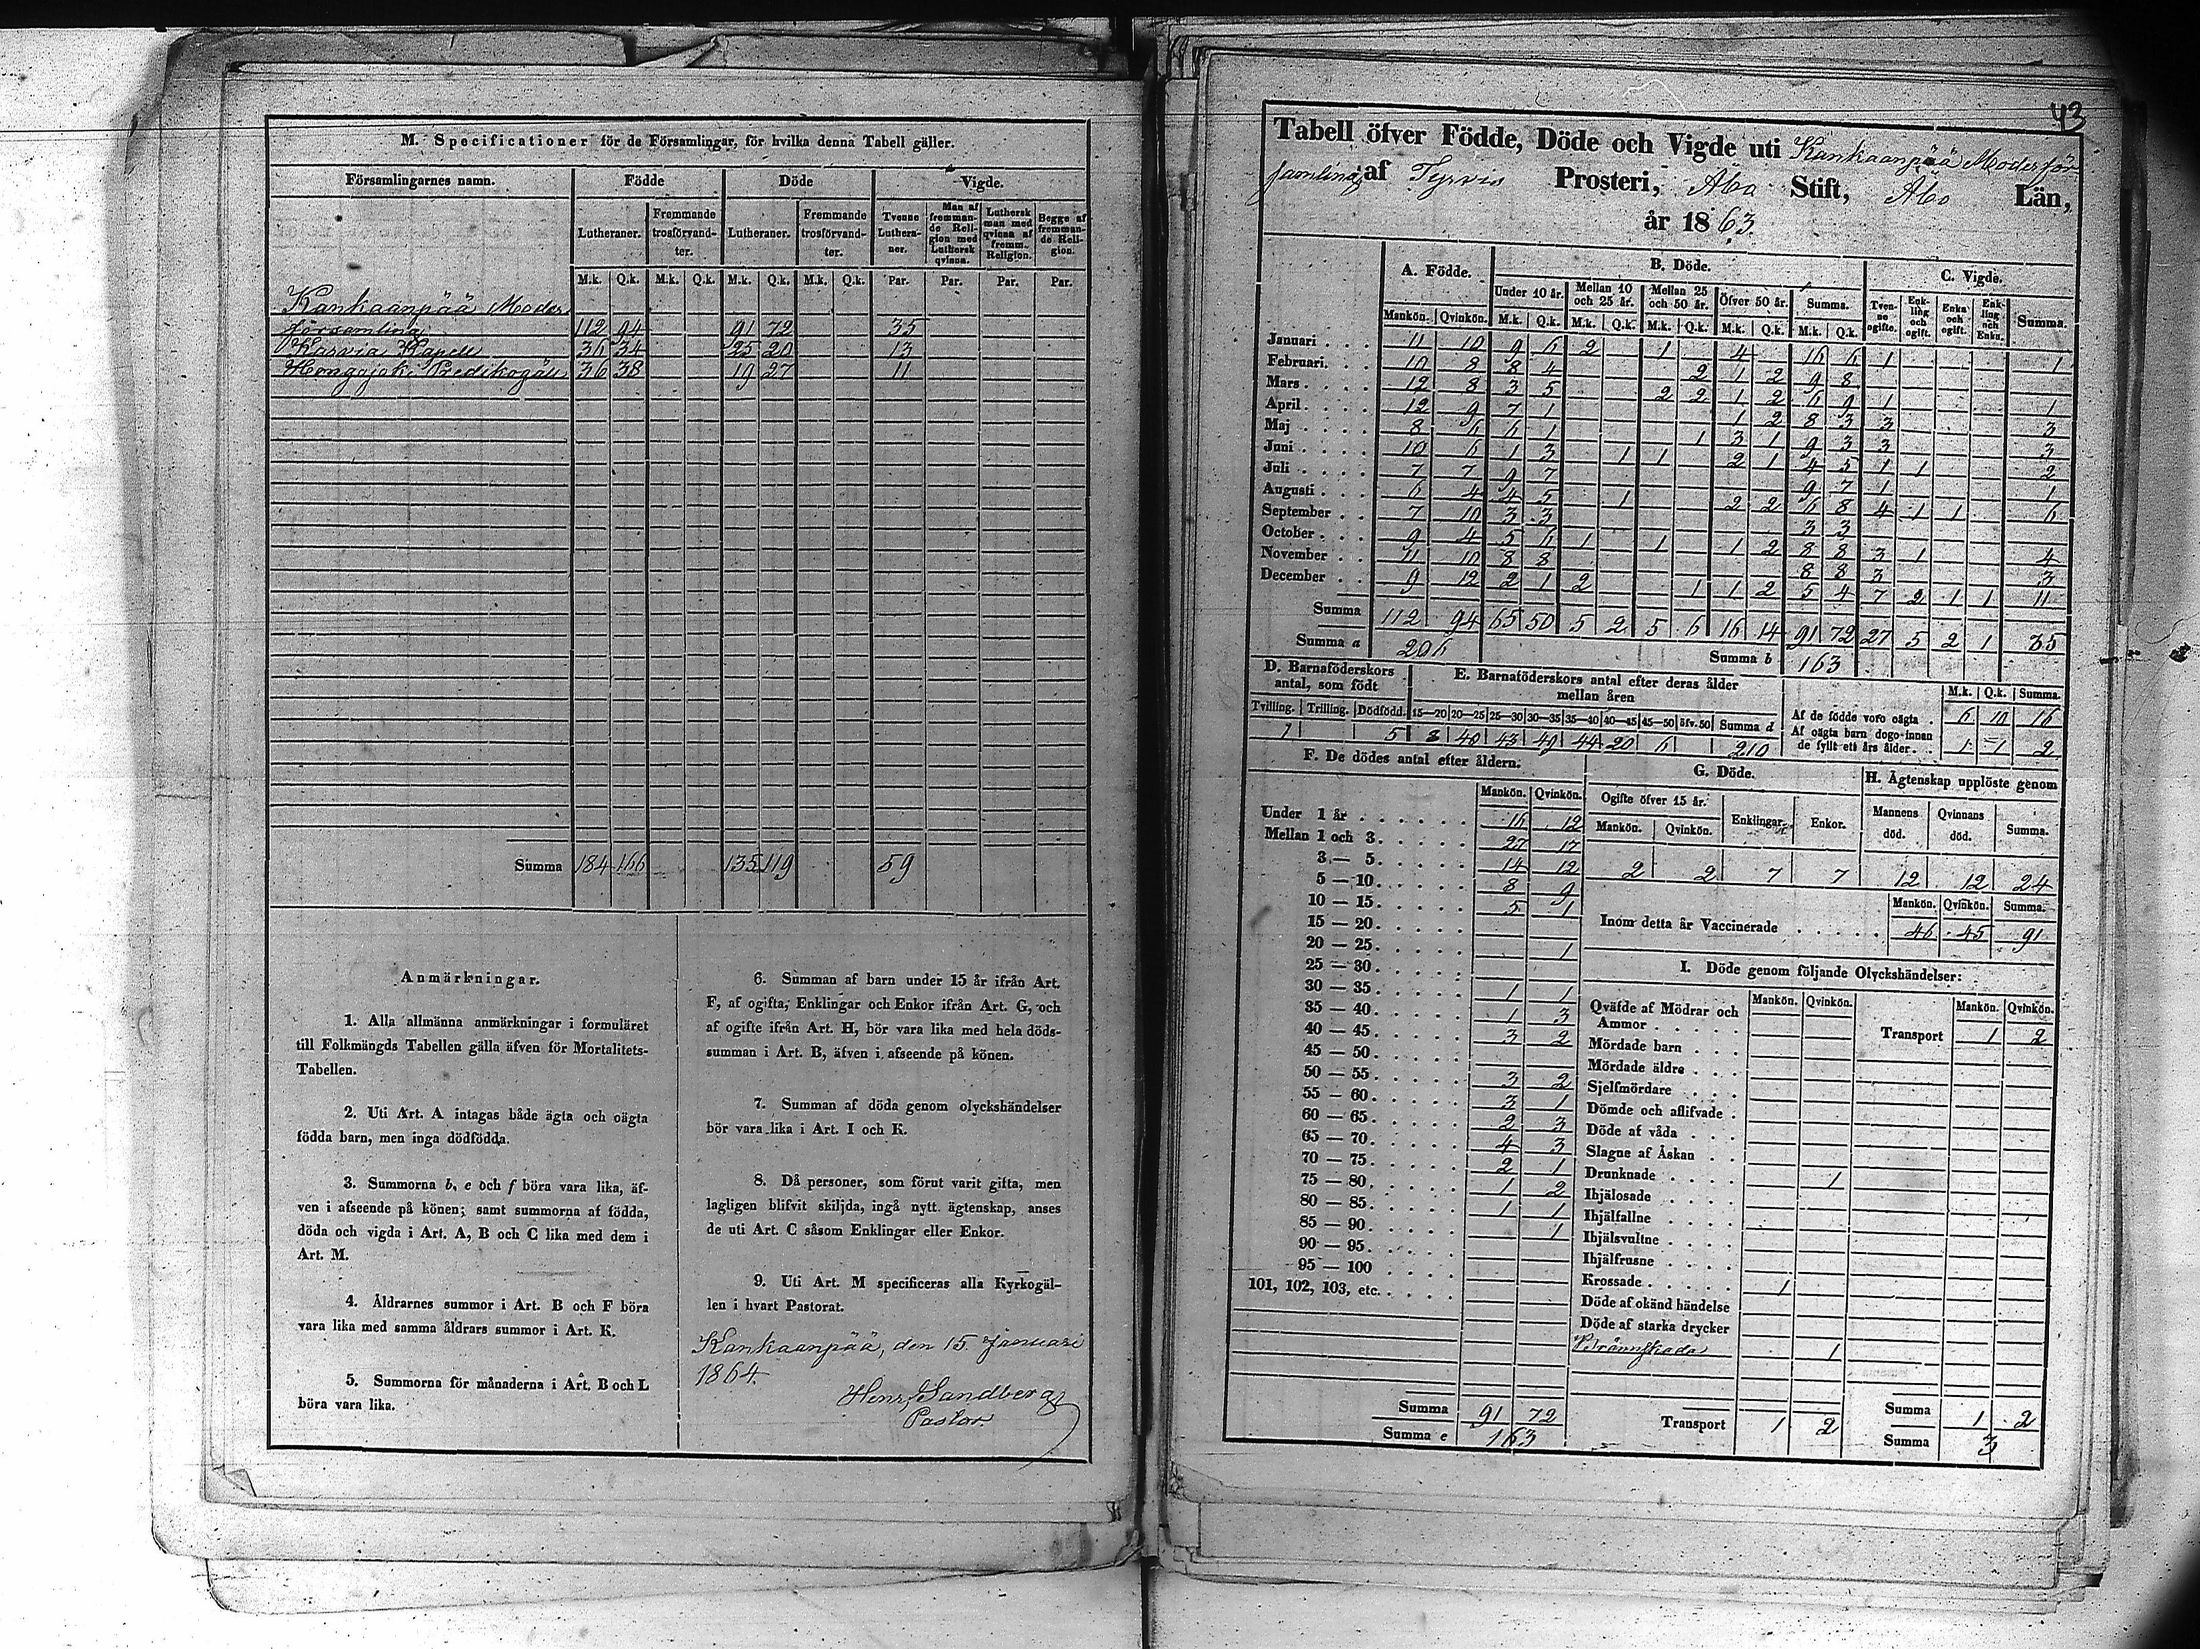 M. Specificationer för de Församlingar, för hvilka denna Tabell gäller.
Församlingarnes namn. Födde Döde Vigde.
Lutheraner. Fremmande trosförvandter. Lutheraner. Fremmande trosförvandter. Tvenne Lutheraner. Man af fremmande Religion med Luthersk qvinna. Luthersk man med qvinna af fremm. Religion. Begge af fremmande Religion.
M.k. Q.k. M.k. Q.k. M.k. Q.k. M.k. Q.k. Par. Par. Par. Par.
Kankaanpää Moder
församling 112 94 91 72 35
Karvia Kapell 36 34 25 20 13
Hongojoki Predikogäll 36 38 19 27 11
Summa 184 166 135 119 59
Anmärkningar.
1. Alla allmänna anmärkningar i formuläret
till Folkmängds Tabellen gälla äfven för Mortalitets-
Tabellen.
2. Uti Art. A intagas både ägta och oägta
födda barn, men inga dödfödda.
3. Summorna b, e och f böra vara lika, äf-
ven i afseende på könen; samt summorna af födda,
döda och vigda i Art. A, B och C lika med dem i
Art. M.
4. Åldrarnes summor i Art. B och F böra
vara lika med samma åldrars summor i Art. K.
5. Summorna för månaderna i Art. B och L
böra vara lika.
6. Summan af barn under 15 år ifrån Art.
F, af ogifta, Enklingar och Enkor ifrån Art. G, och
af ogifte ifrån Art. H, bör vara lika med hela döds-
summan i Art. B, äfven i afseende på könen.
7. Summan af döda genom olyckshändelser
bör vara lika i Art. I och K.
8. Då personer, som förut varit gifta, men
lagligen blifvit skiljda, ingå nytt ägtenskap, anses
de uti Art. C såsom Enklingar eller Enkor.
9. Uti Art. M specificeras alla Kyrkogäl-
len i hvart Pastorat.
Kankaanpää, den 15. Januari
1864.
Henr. Sandberg
Pastor.
43
Tabell öfver Födde, Döde och Vigde uti Kankaanpää Moderför
samling af Tyrvis Prosteri, Åbo Stift, Åbo Län,
år 1863.
A. Födde. B. Döde. C. Vigde.
Under 10 år. Mellan 10 och 25 år. Mellan 25 och 50 år. Öfver 50 år. Summa. Tvenne ogifte. Enkling och ogift. Enka och ogift. Enkling och Enka. Summa.
Mankön. Qvinkön. M.k. Q.k. M.k. Q.k. M.k. Q.k. M.k. Q.k. M.k. Q.k.
Januari 11 10 9 6 2 1 4 16 6 1 1
Februari 10 8 8 4 2 1 2 9 8
Mars 12 8 3 5 2 2 1 2 6 9 1 1
April 12 9 7 1 1 2 8 3 3 3
Maj 8 6 6 1 1 3 1 9 3 3 3
Juni 10 6 1 3 1 1 2 1 4 5 1 1 2
Juli 7 7 9 7 9 7 1 1
Augusti 6 4 4 5 1 2 2 6 8 4 1 1 6
September 7 10 3 3 3 3
October 9 4 5 6 1 1 1 2 8 8 3 1 4
November 11 10 8 8 8 8 3 3
December 9 12 2 1 2 1 1 2 5 4 7 2 1 1 11
Summa 112 94 65 50 5 2 5 6 16 14 91 72 27 5 2 1 35
Summa a 206 Summa b 163
D. Barnaföderskors antal, som födt
Tvilling. Trilling. Dödfödd.
1 5
E. Barnaföderskors antal efter deras ålder
mellan åren
15—20 20—25 25—30 30—35 35—40 40—45 45—50 öfv. 50 Summa d
8 40 43 49 44 20 6 210
M.k. Q.k. Summa.
Af de födde voro oägta 6 10 16
Af oägta barn dogo innan
de fyllt ett års ålder 1 1 2
F. De dödes antal efter åldern.
Mankön. Qvinkön.
Under 1 år 16 12
Mellan 1 och 3 27 17
3 — 5 14 12
5 — 10 8 9
10 — 15 5 1
15 — 20
20 — 25 1
25 — 30
30 — 35 1 1
35 — 40 1 3
40 — 45 3 2
45 — 50
50 — 55 3 2
55 — 60 3 1
60 — 65 2 3
65 — 70 4 3
70 — 75 2 1
75 — 80 1 2
80 — 85 1 1
85 — 90 1
90 — 95
95 — 100
101, 102, 103, etc.
Summa 91 72
Summa e 163
G. Döde.
Ogifte öfver 15 år. Enklingar. Enkor.
Mankön. Qvinkön.
2 2 7 7
H. Ägtenskap upplöste genom
Mannens död. Qvinnans död. Summa.
12 12 24
Mankön. Qvinkön. Summa.
Inom detta år Vaccinerade 46 45 91
I. Döde genom följande Olyckshändelser:
Mankön. Qvinkön. Mankön. Qvinkön.
Qväfde af Mödrar och
Ammor
Transport 1 2
Mördade barn
Mördade äldre
Sjelfmördare
Dömde och aflifvade
Döde af våda
Slagne af Åskan
Drunknade 1
Ihjälosade
Ihjälfallne
Ihjälsvultne
Ihjälfrusne
Krossade 1
Döde af okänd händelse
Döde af starka drycker
Brännskada 1
Transport 1 2
Summa 1 2
Summa 3